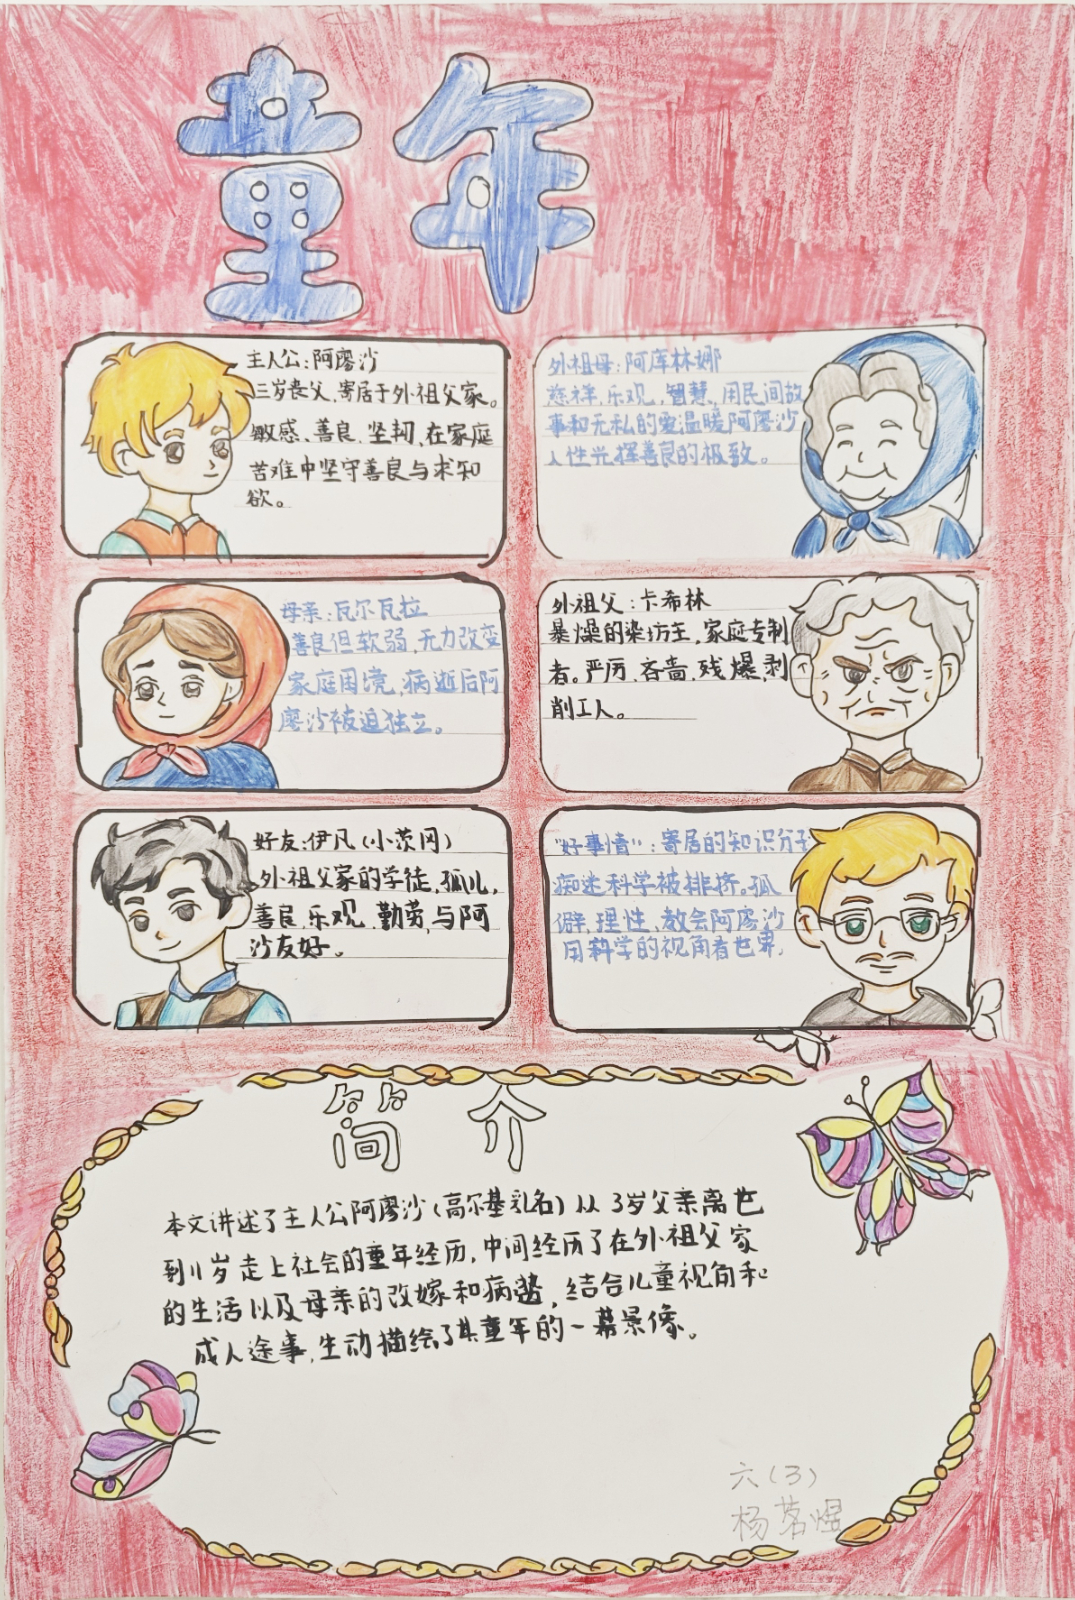 童年
主人公:阿廖沙
三岁丧父,寄居于外祖父家。
敏感、善良、坚韧,在家庭
苦难中坚守善良与求知
欲。
外祖母:阿库林娜
慈祥,乐观,智慧,用民间故
事和无私的爱温暖阿廖沙
人性光挥善良的极致。
母亲:瓦尔瓦拉
善良但软弱,无力改变
家庭困境,病逝后阿
廖沙被迫独立。
外祖父:卡希林
暴燥的染坊主,家庭专制
者。严厉、吝啬,残爆剥
削工人。
好友:伊凡(小茨冈)
外祖父家的学徒,孤儿,
善良,乐观,勤劳,与阿
沙友好。
"好事情":寄居的知识分子
痴迷科学被排挤。孤
僻,理性,教会阿廖沙
用科学的视角看世界,
简介
本文讲述了主人公阿廖沙(高尔基乳名)从3岁父亲离世
到11岁走上社会的童年经历,中间经历了在外祖父家
的生活以及母亲的改嫁和病逝,结合儿童视角和
成人途事,生动描绘了其童年的一幕景像。
六(3)
杨茗煜